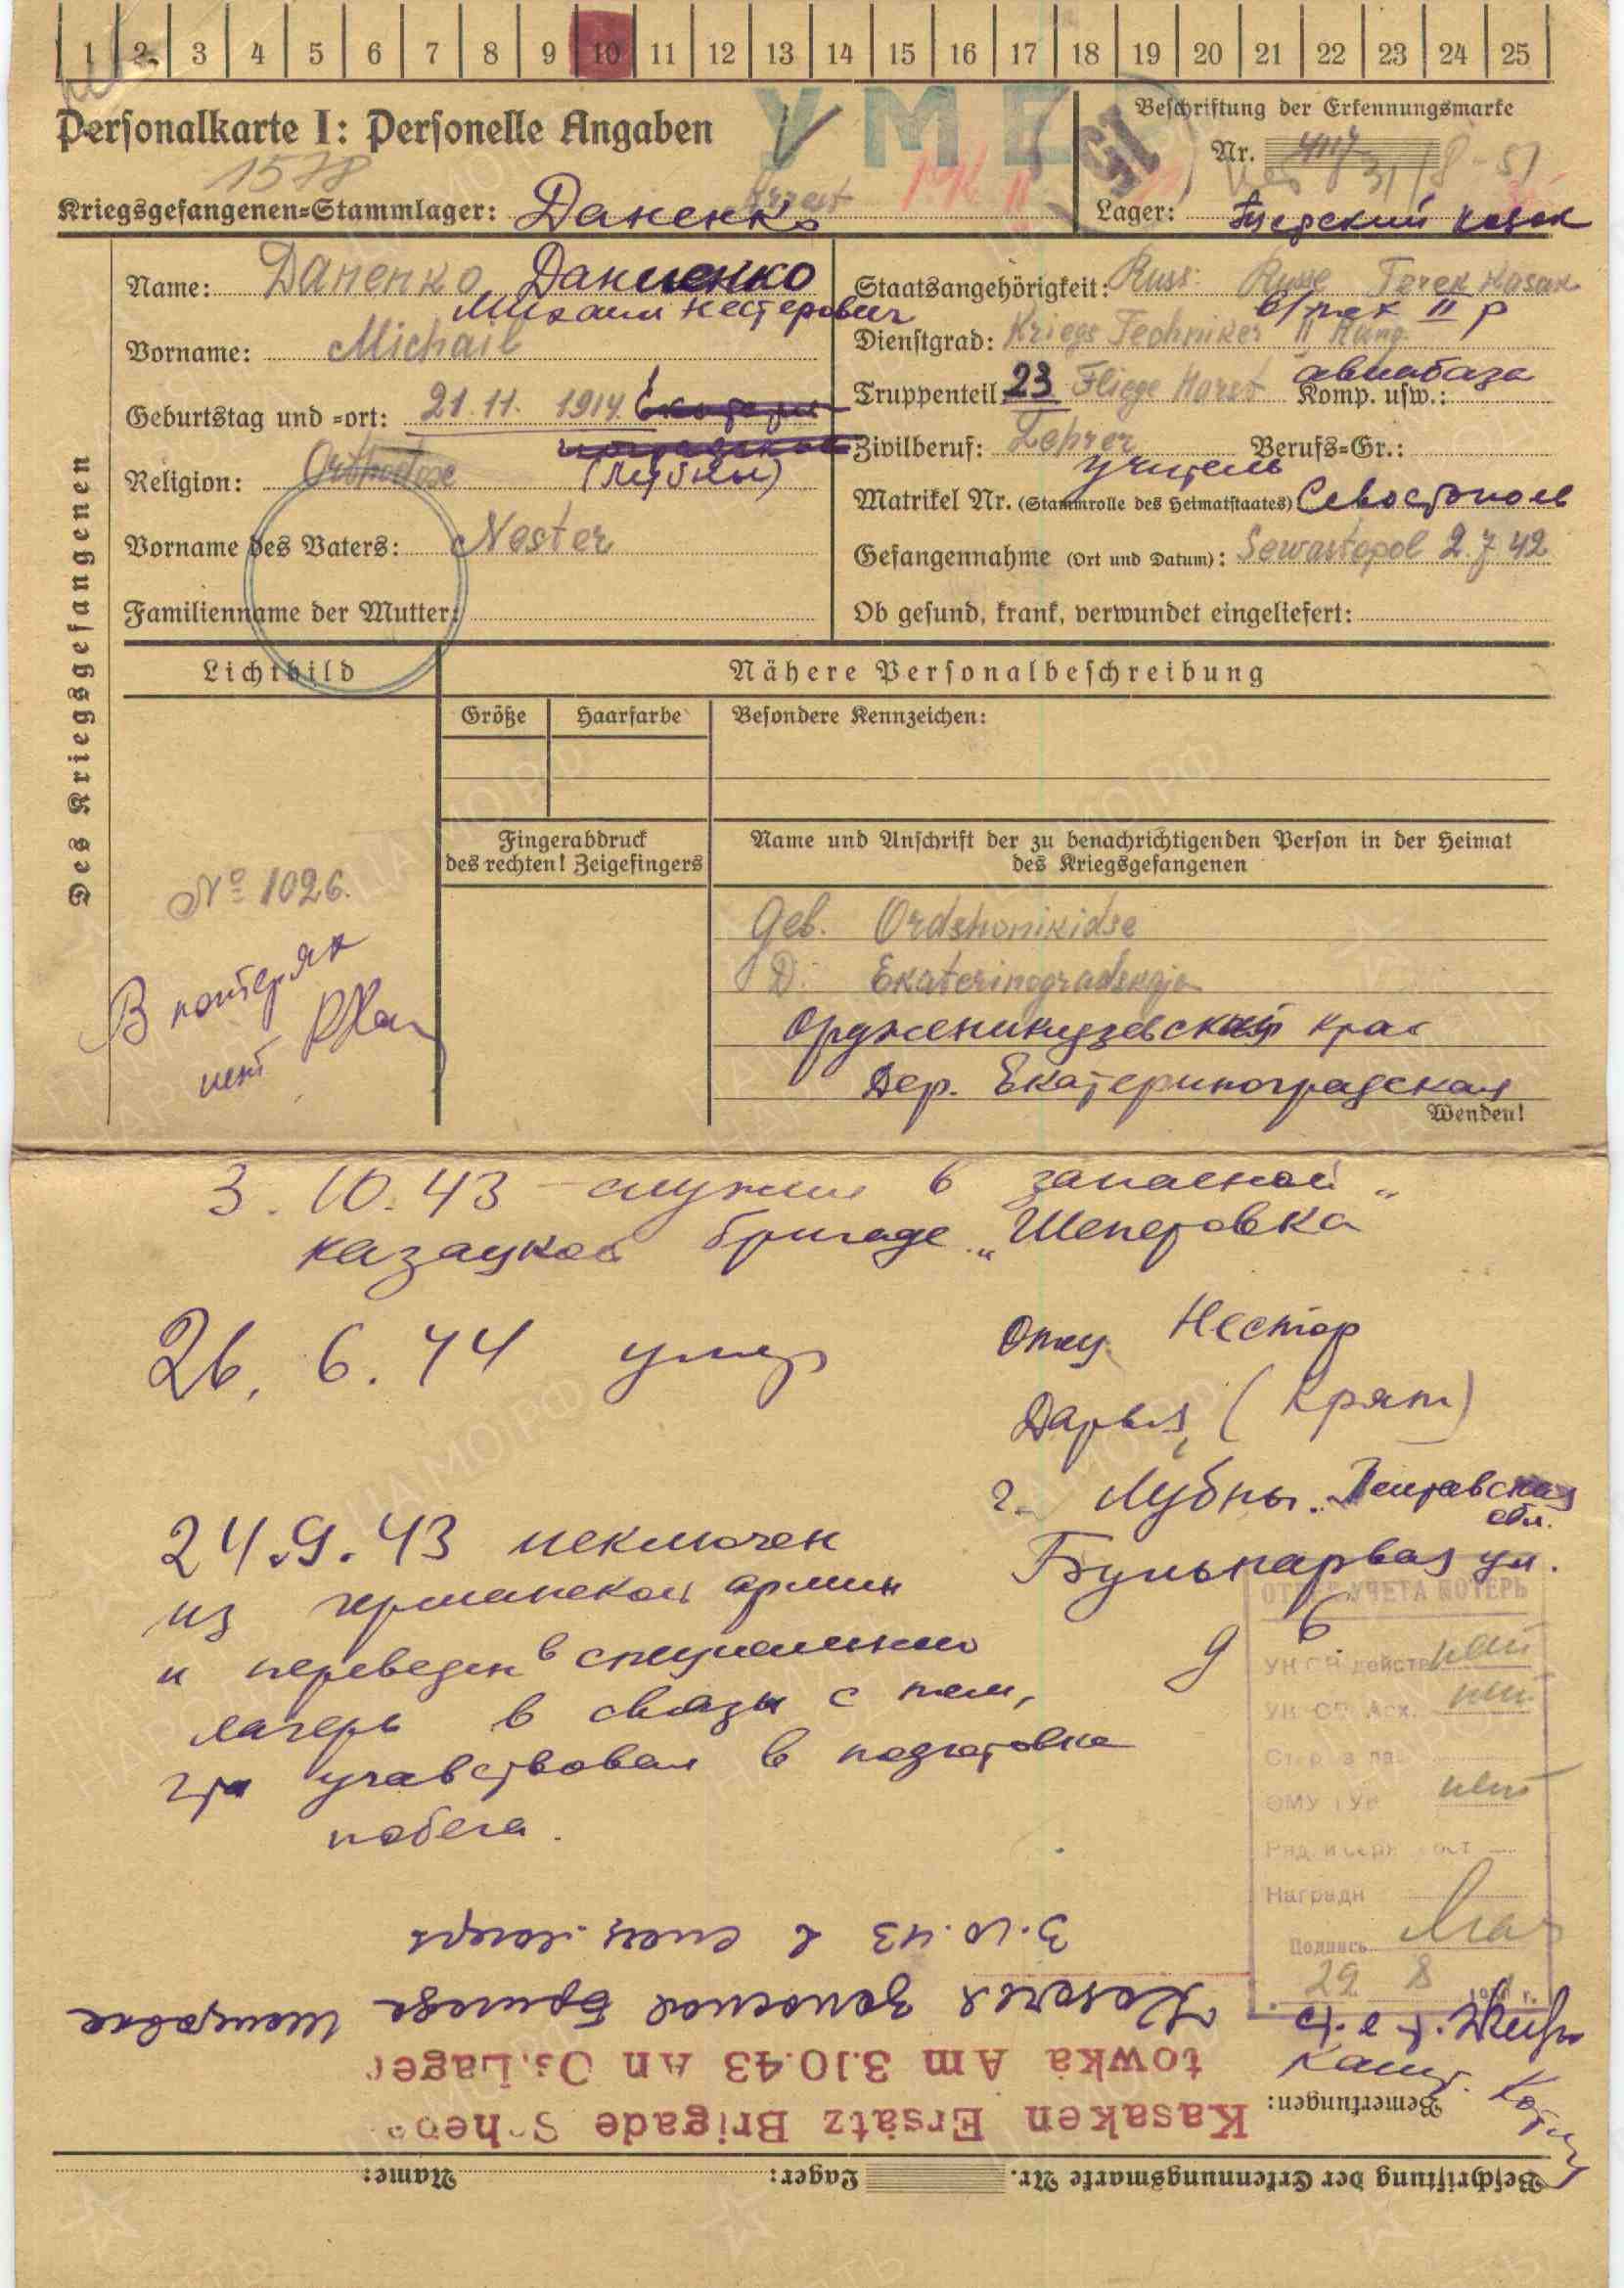 1 2 3 4 5 6 7 8 9 10 11 12 13 14 15 16 17 18 19 20 21 22 23 24 25
Personalkarte I: Personelle Angaben
УМЕР
Beschriftung der Erkennungsmarke
Nr.
1578
Kriegsgefangenen-Stammlager: Даненко
Lager: Терский казак
Des Kriegsgefangenen
Name: Danenko Даниленко
Михаил Нестерович
Vorname: Michail
Geburtstag und -ort: 21.11. 1914
Religion: Orthodoxe (Лубны)
Vorname des Vaters: Nester
Familienname der Mutter:
Staatsangehörigkeit: Russ. Russe Terek Kasak
в/тех II р
Dienstgrad: Kriegs Techniker II Rang.
авиабаза
Truppenteil: 23 Fliege Horst Komp. usw.:
Zivilberuf: Lehrer Berufs-Gr.:
учитель
Matrikel Nr. (Stammrolle des Heimatstaates) Севастополь
Gefangennahme (Ort und Datum): Sewastopol 2.7.42
Ob gesund, krank, verwundet eingeliefert:
Lichtbild
Nähere Personalbeschreibung
Größe Haarfarbe Besondere Kennzeichen:
Fingerabdruck
des rechten! Zeigefingers
Name und Anschrift der zu benachrichtigenden Person in der Heimat
des Kriegsgefangenen
№ 1026.
В потерях
нет
Geb. Ordshonikidse
D. Ekaterinogradskaja
Орджоникидзевский край
Дер. Екатериноградская
Wenden!
3.10.43 служил в запасной
казацкой бригаде „Шепетовка"
26.6.44 умер
Отец Нестор
Дарья (Крят)
г. Лубны Полтавская
обл.
Бульварная ул.
д 6
24.9.43 исключен
из германской армии
и переведен в специальный
лагерь в связи с тем,
что участвовал в подготовке
побега.
ОТДЕЛ УЧЕТА ПОТЕРЬ
нет
нет
нет
Наградн
Подпись
29 8
3.10.43 в спец. лагерь
Казачья запасная бригада Шепетовка
Bemerkungen: Kasaken Ersatz Brigade Schepe
towka Am 3.10.43 An Os. Lager
Beschriftung der Erkennungsmarke Nr. Lager: Name: